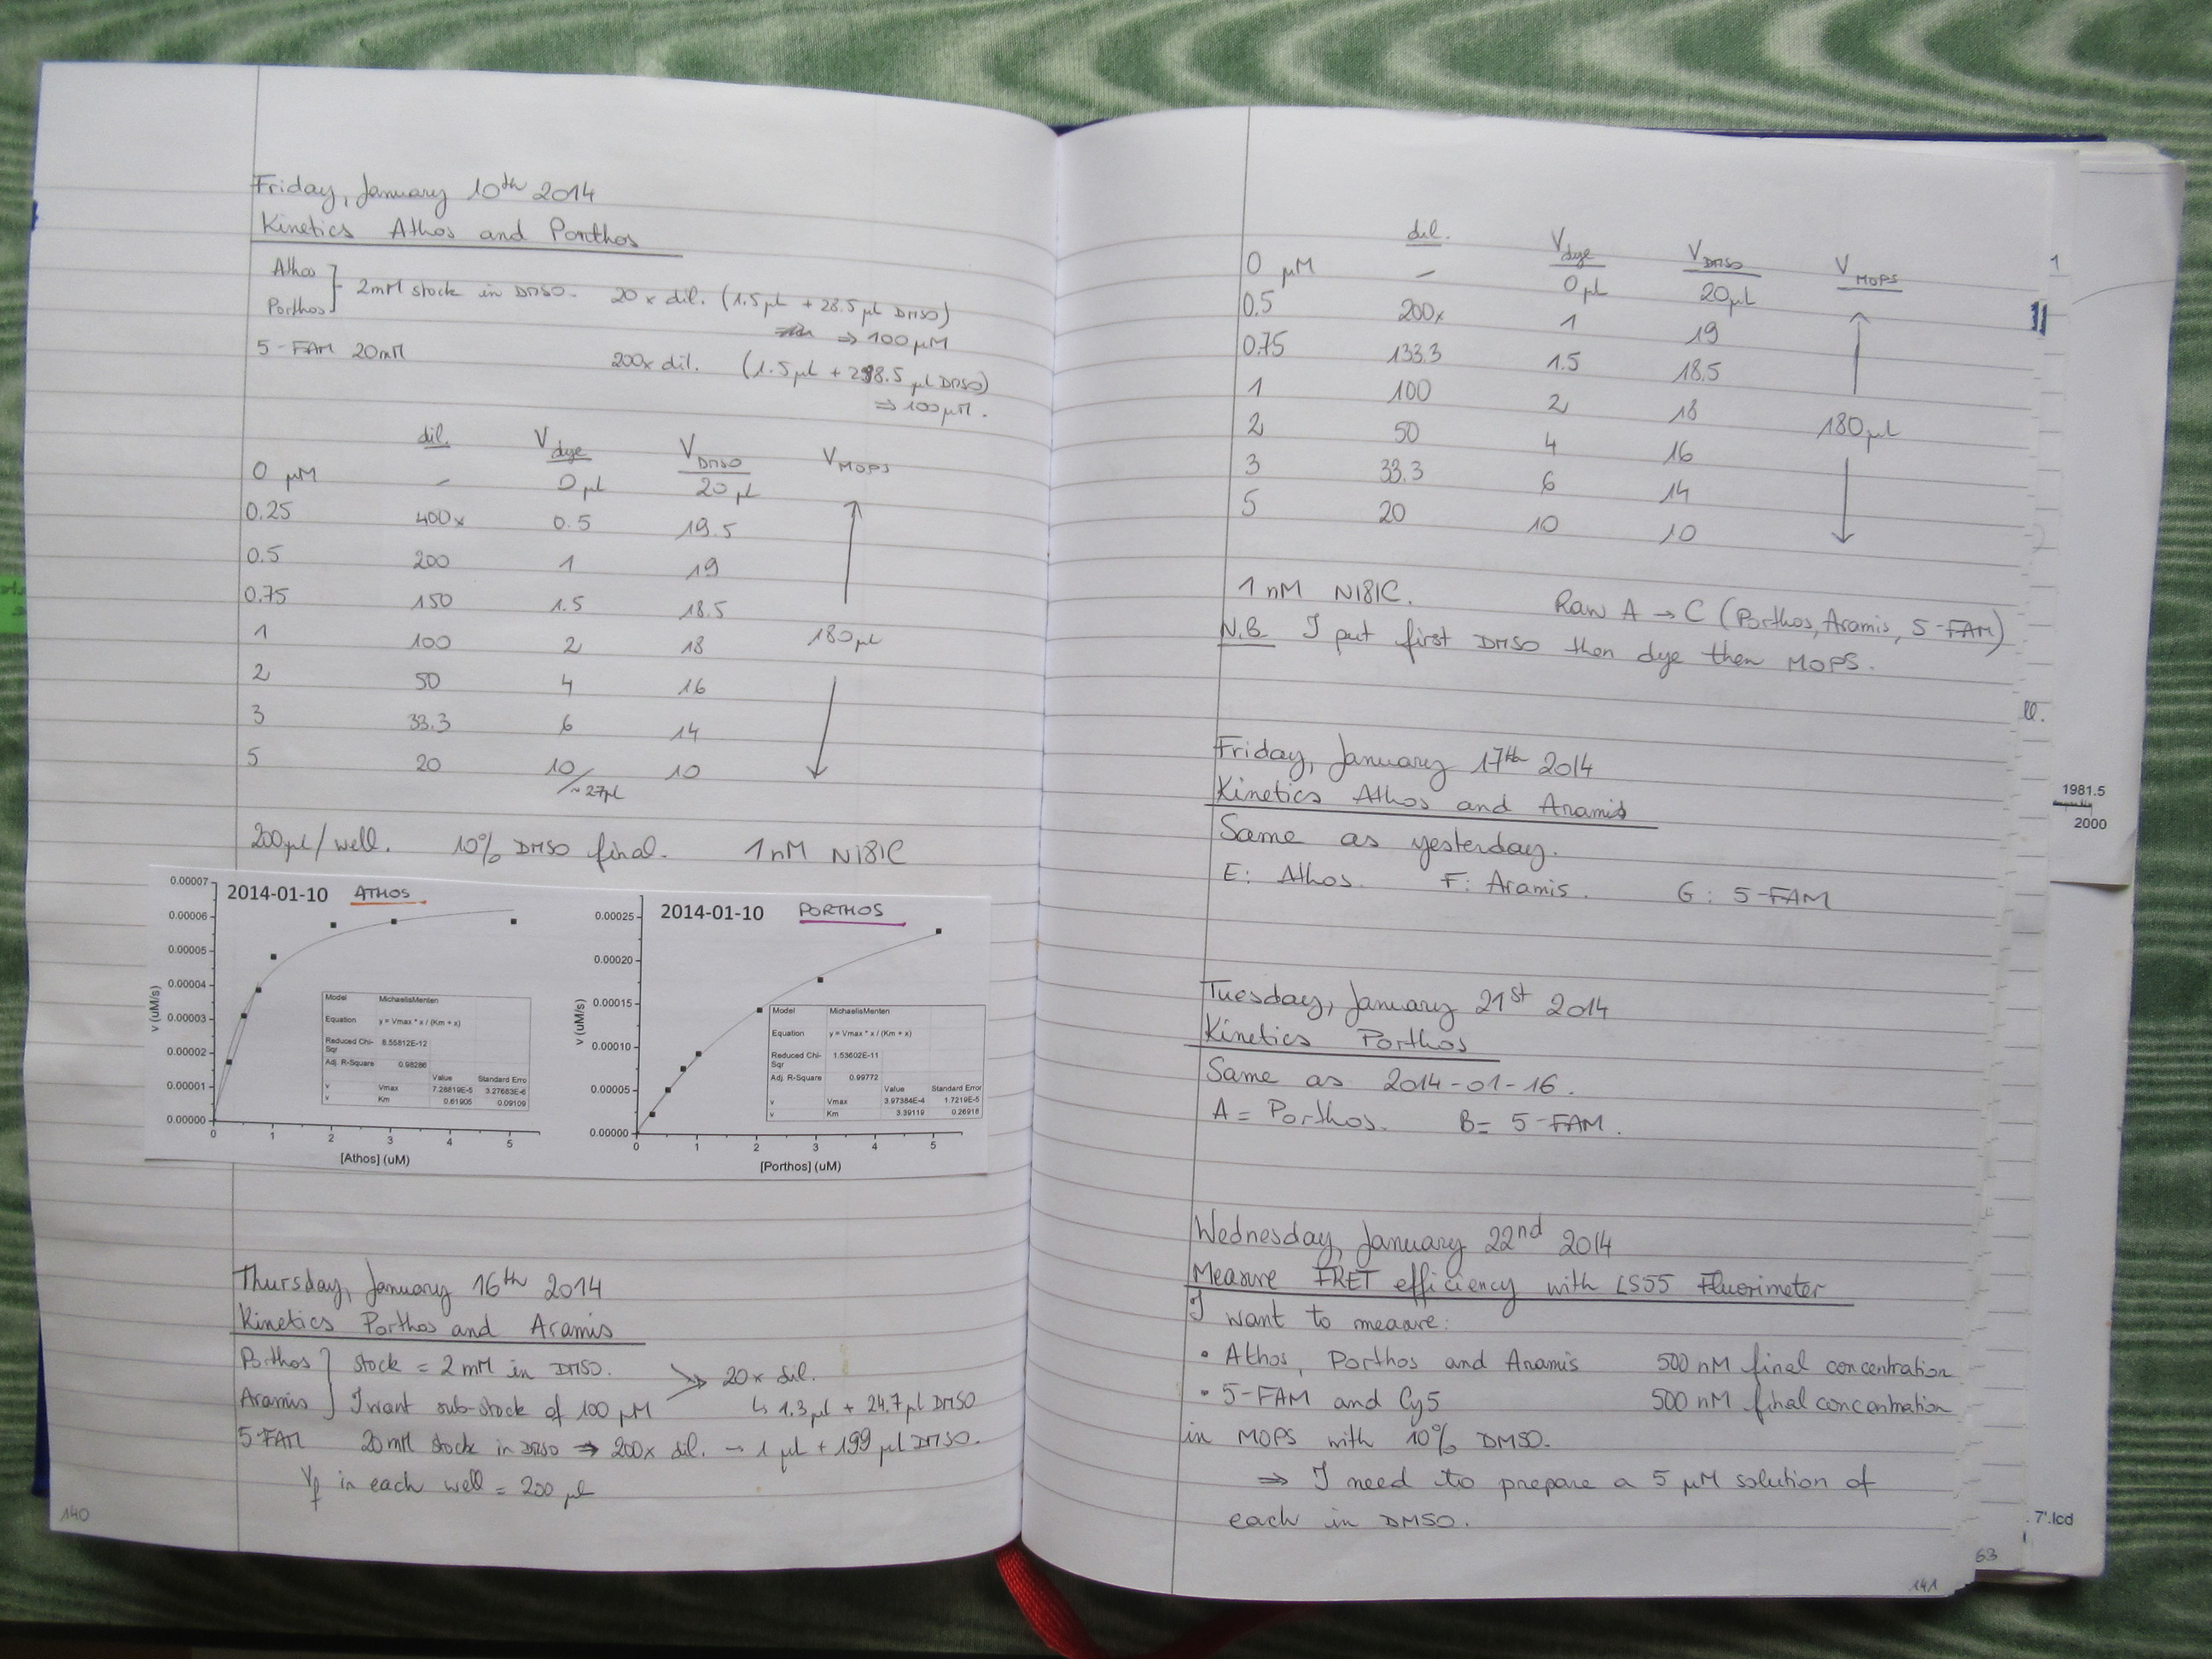 Friday, January 10th 2014
Kinetics Athos and Porthos
Athos
Porthos
2mM stock in DMSO. 20x dil. (1.5 µl + 28.5 µl DMSO)
⇒ 100 µM
5-FAM 20mM 200x dil. (1.5 µl + 298.5 µl DMSO)
⇒ 100 µM.
dil. Vdye VDMSO VMOPS
0 µM – 0 µl 20 µl
0.25 400x 0.5 19.5
0.5 200 1 19
0.75 150 1.5 18.5
1 100 2 18 180 µl
2 50 4 16
3 33.3 6 14
5 20 10 10
~27µl
200µl/well. 10% DMSO final. 1 nM N181C
2014-01-10 ATHOS
0.00007
0.00006
0.00005
0.00004
0.00003
0.00002
0.00001
0.00000
v (uM/s)
Model MichaelisMenten
Equation y = Vmax * x / (Km + x)
Reduced Chi-Sqr 8.55812E-12
Adj. R-Square 0.98286
Value Standard Erro
v Vmax 7.28819E-5 3.27683E-6
v Km 0.61905 0.09109
0 1 2 3 4 5
[Athos] (uM)
2014-01-10 PORTHOS
0.00025
0.00020
0.00015
0.00010
0.00005
0.00000
v (uM/s)
Model MichaelisMenten
Equation y = Vmax * x / (Km + x)
Reduced Chi-Sqr 1.53602E-11
Adj. R-Square 0.99772
Value Standard Error
v Vmax 3.97384E-4 1.7219E-5
v Km 3.39119 0.26918
0 1 2 3 4 5
[Porthos] (uM)
Thursday, January 16th 2014
Kinetics Porthos and Aramis
Porthos stock = 2 mM in DMSO.
20x dil.
Aramis I want sub-stock of 100 µM ↳ 1.3 µl + 24.7 µl DMSO
5-FAM 20mM stock in DMSO ⇒ 200x dil. → 1 µl + 199 µl DMSO.
Vf in each well = 200 µl
140
dil. Vdye VDMSO VMOPS
0 µM – 0µl 20µl
0.5 200x 1 19
0.75 133.3 1.5 18.5
1 100 2 18
2 50 4 16 180µl
3 33.3 6 14
5 20 10 10
1 nM N181C. Raw A → C (Porthos, Aramis, 5-FAM)
N.B. I put first DMSO then dye then MOPS.
Friday, January 17th 2014
Kinetics Athos and Aramis
Same as yesterday.
E: Athos. F: Aramis. G: 5-FAM
Tuesday, January 21st 2014
Kinetics Porthos
Same as 2014-01-16.
A = Porthos. B = 5-FAM.
Wednesday, January 22nd 2014
Measure FRET efficiency with LS55 Fluorimeter
I want to measure:
• Athos, Porthos and Aramis 500 nM final concentration
• 5-FAM and Cy5 500 nM final concentration
in MOPS with 10% DMSO.
⇒ I need to prepare a 5 µM solution of
each in DMSO.
141
1
ll.
1981.5
2000
7'.lcd
63